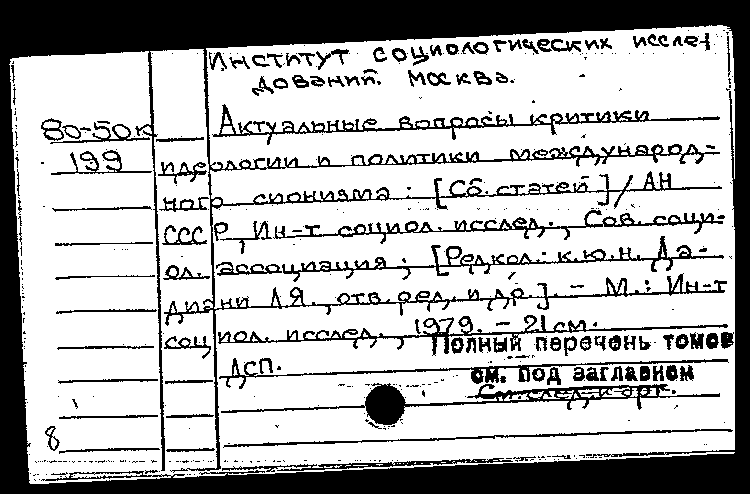 Институт социологических исслед
дований. Москва.
80-50к Актуальные вопросы критики
199 идеологии и политики международ-
ного сионизма: [Сб. статей]/АН
СССР, Ин-т социол. исслед., Сов. соци-
ол. ассоциация; [Редкол.: к.ю.н. Да-
диани Л.Я., отв. ред. и др.]. - М.: Ин-т
социол. исслед., 1979. - 21 см.
Полный перечень томов
ДСП.
см. под заглавием
См. след. к-арт.
8